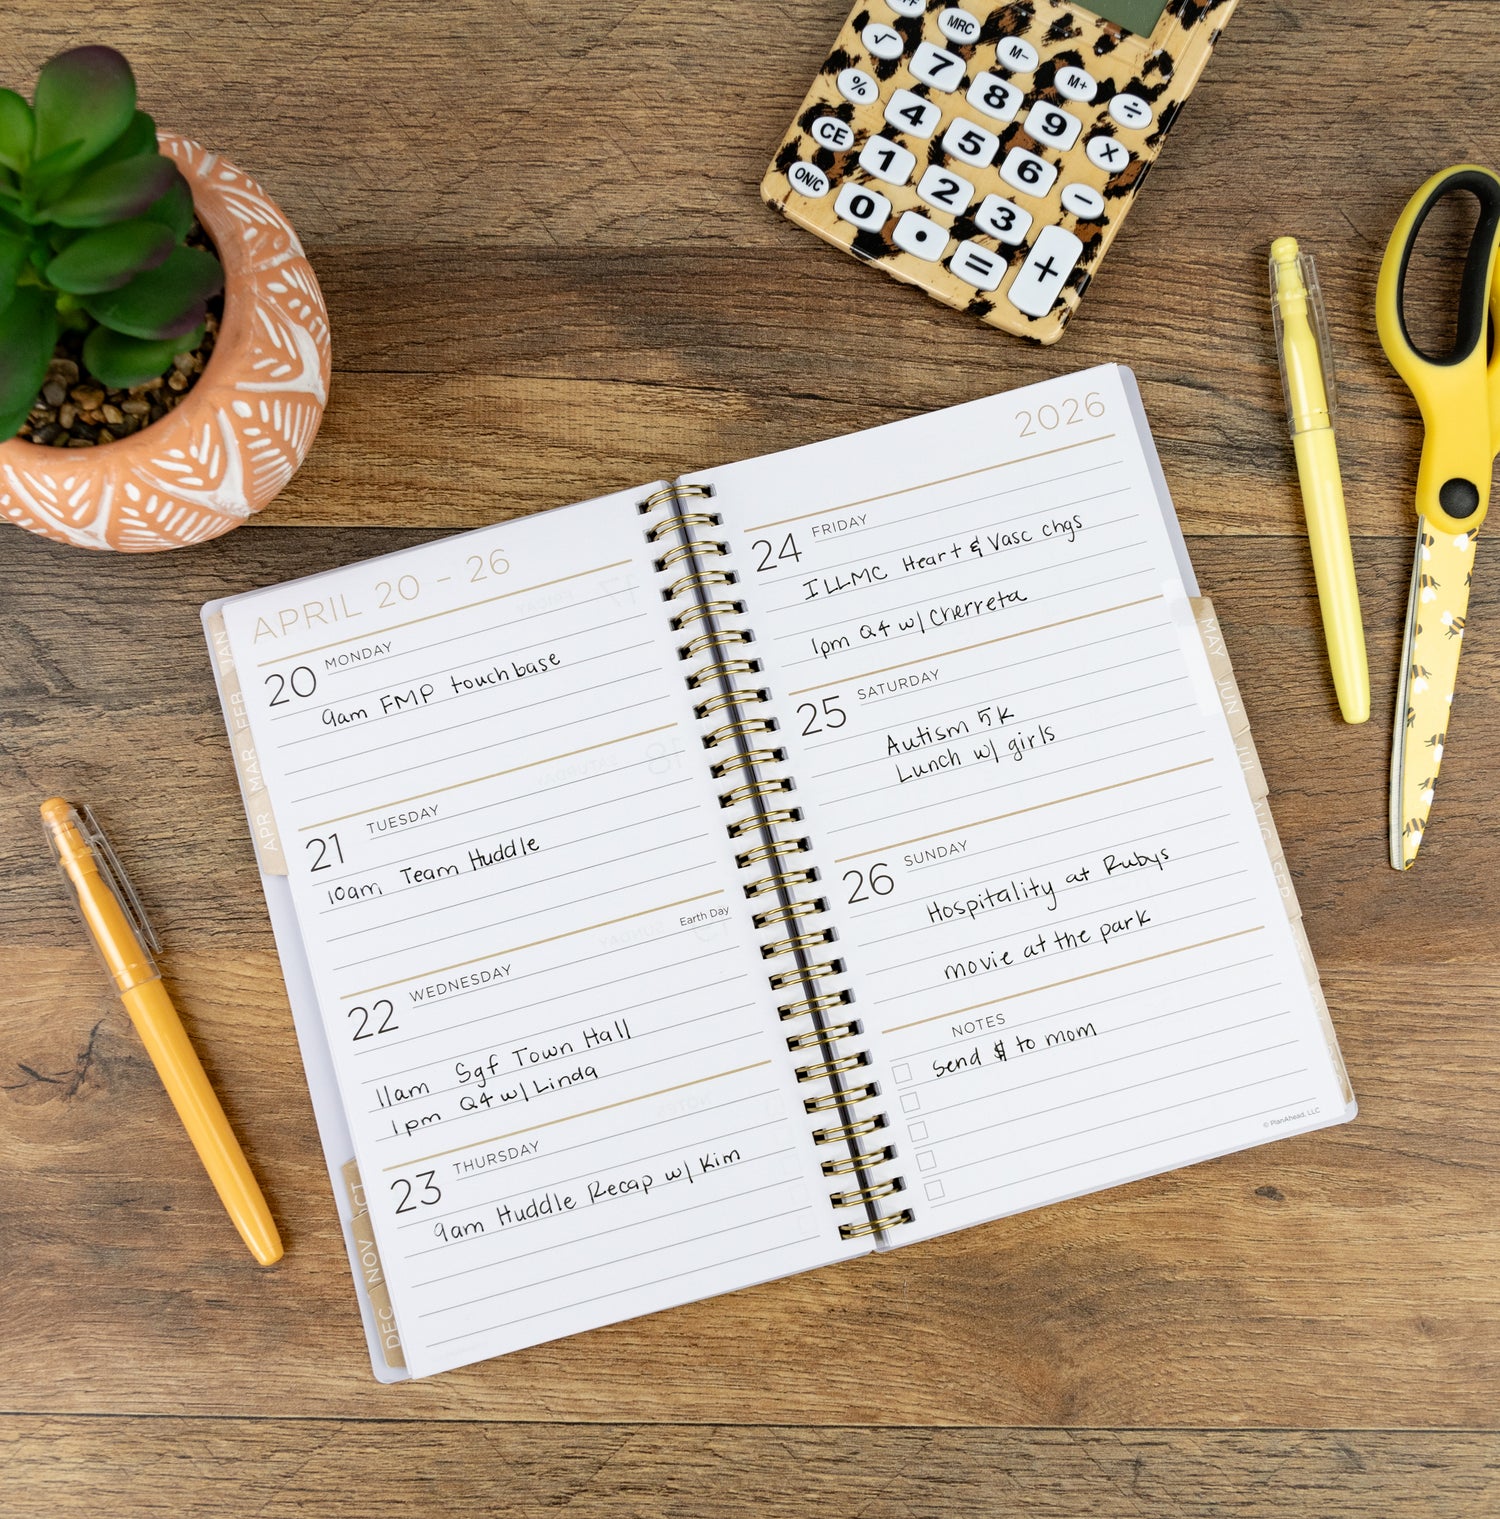 MRC
M-
M+
÷
√
7
8
9
×
%
4
5
6
−
CE
1
2
3
+
ON/C
0
.
=
APRIL 20 - 26
20 MONDAY
9am FMP touchbase
21 TUESDAY
10am Team Huddle
Earth Day
22 WEDNESDAY
11am Sgf Town Hall
1pm Q4 w/ Linda
23 THURSDAY
9am Huddle Recap w/ Kim
2026
24 FRIDAY
ILLMC Heart & Vasc chgs
1pm Q4 w/ Cherreta
25 SATURDAY
Autism 5K
Lunch w/ girls
26 SUNDAY
Hospitality at Rubys
movie at the park
NOTES
Send $ to mom
© PlanAhead, LLC
JAN
FEB
MAR
APR
MAY
JUN
JUL
AUG
SEP
NOV
DEC